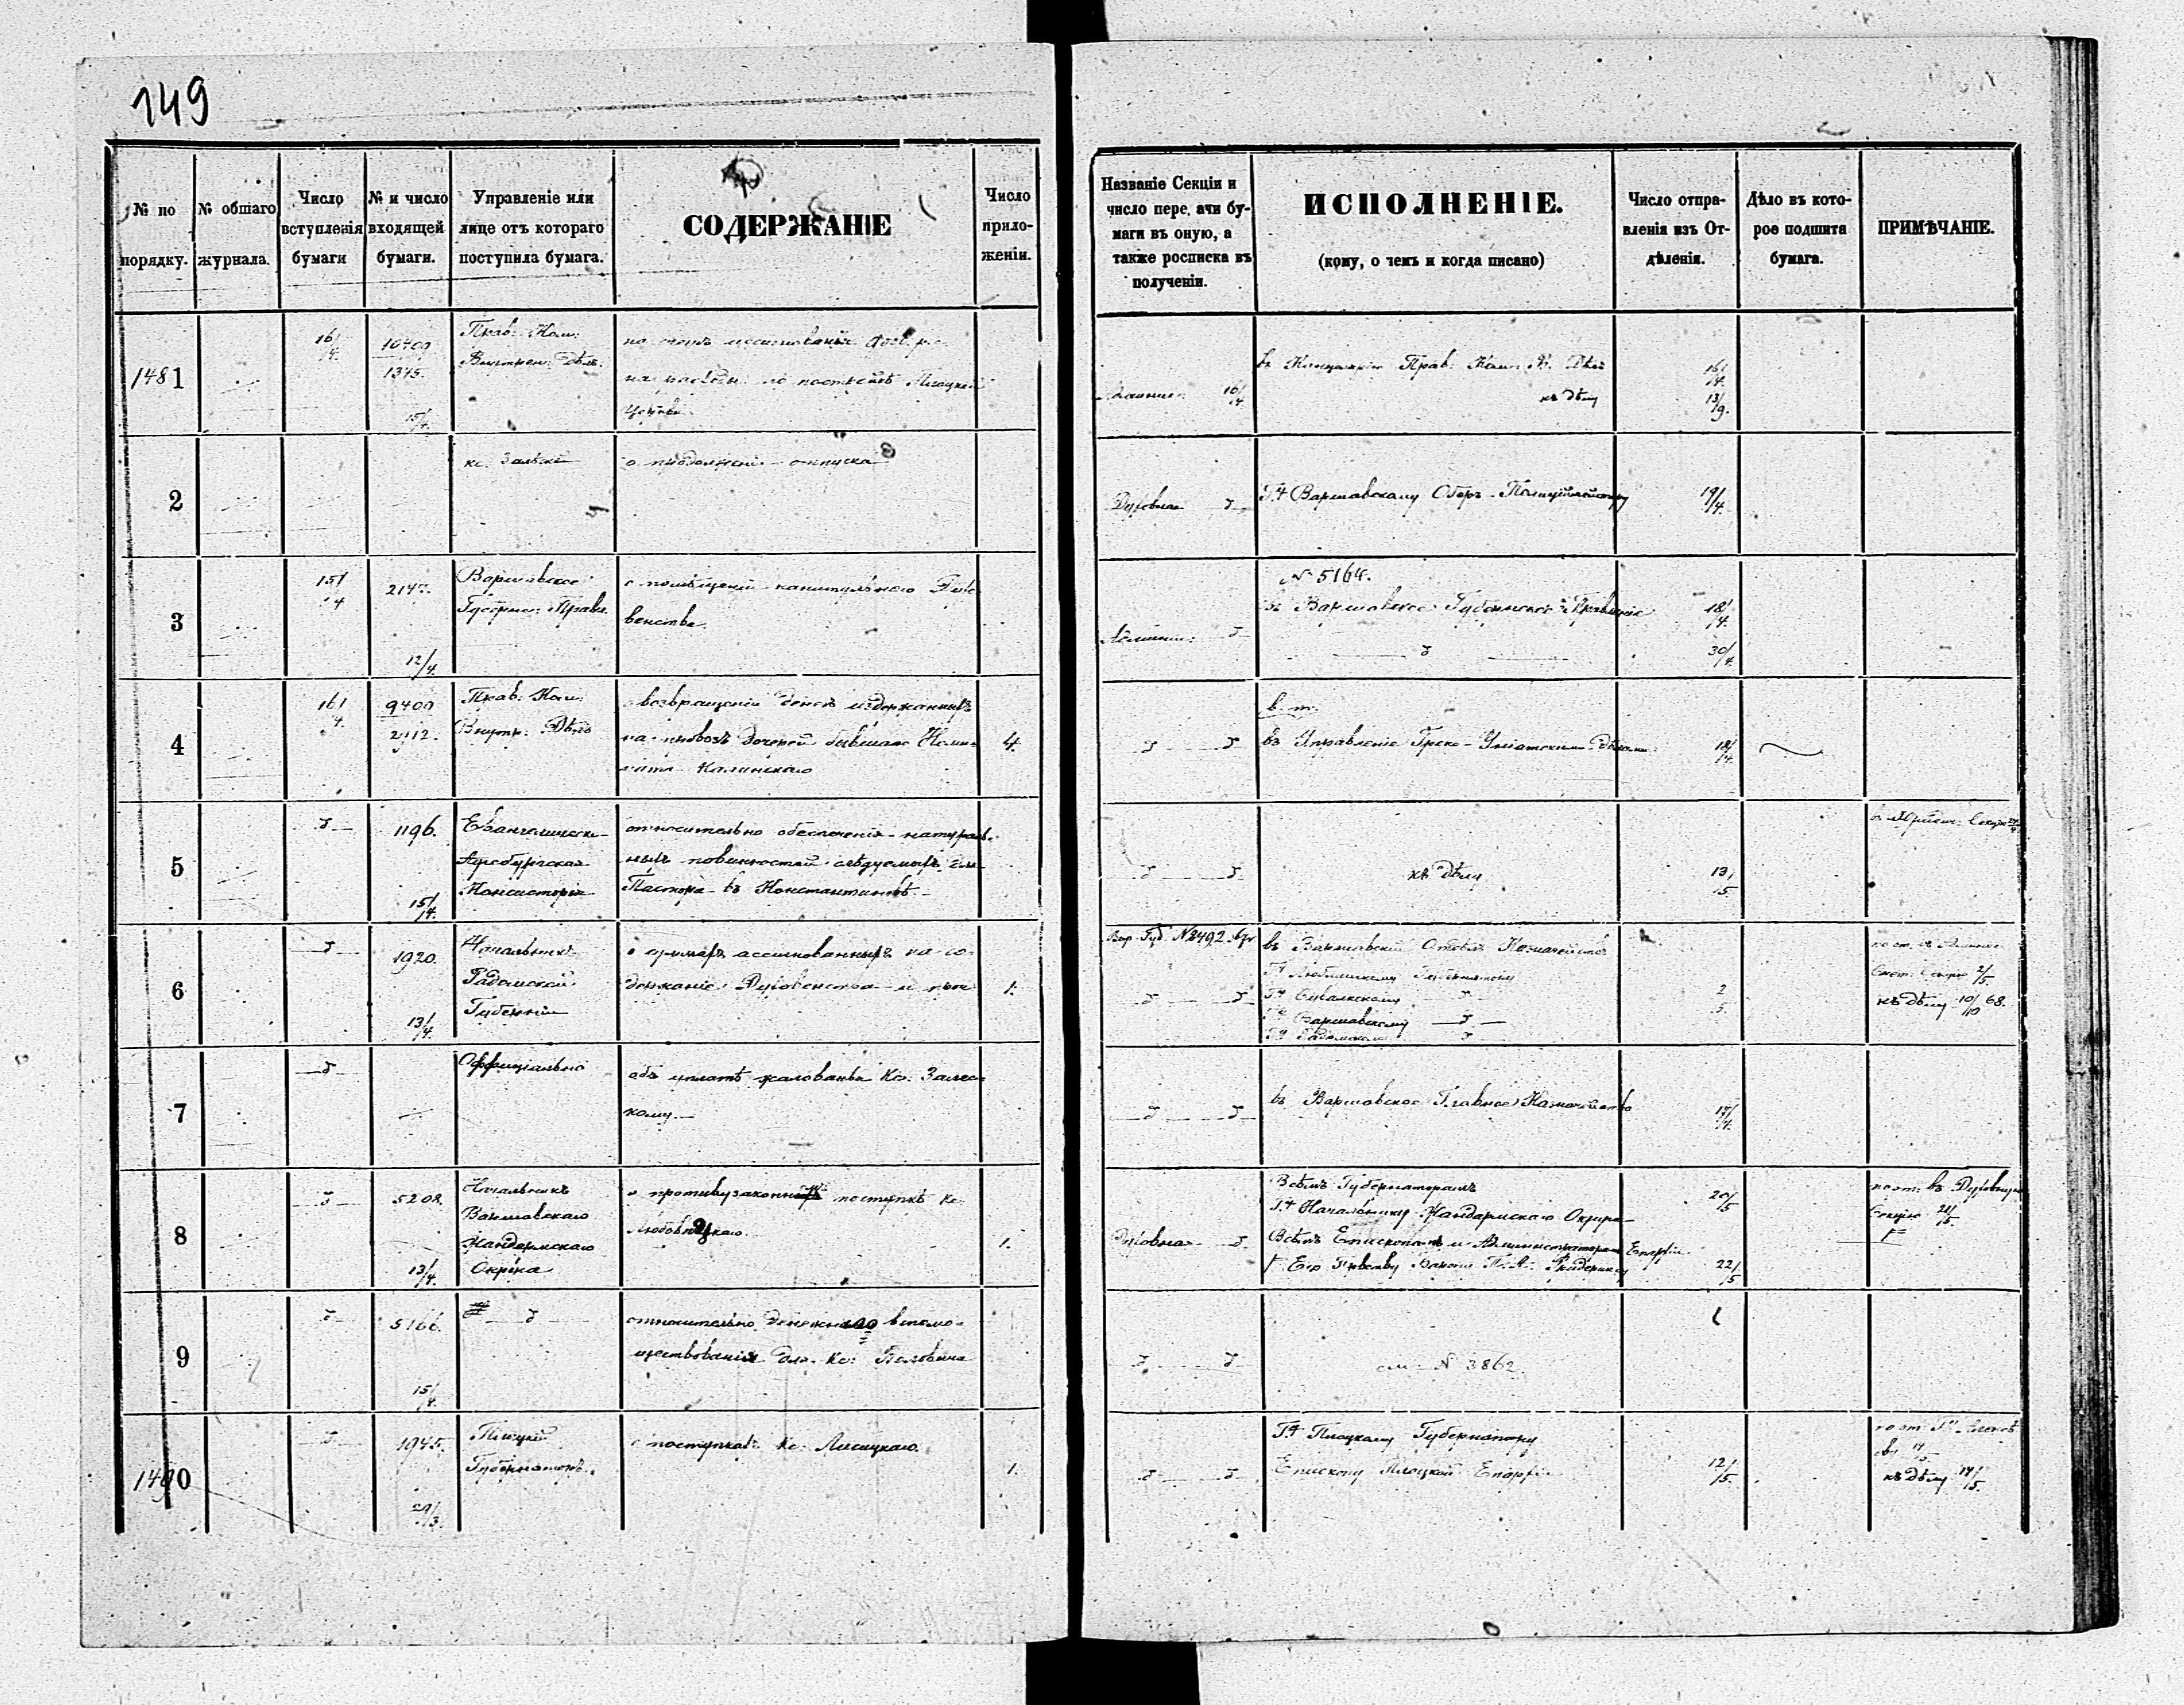 149
№ по порядку.
№ общаго журнала.
Число вступленія бумаги
№ и число входящей бумаги.
Управленіе или лице отъ котораго поступила бумага.
СОДЕРЖАНІЕ
Число приложеніи.
Названіе Секціи и число пере. ачи бумаги въ оную, а также росписка въ полученіи.
ИСПОЛНЕНІЕ.
(кому, о чемъ и когда писано)
Число отправленія изъ Отдѣленія.
Дѣло въ которое подшита бумага.
ПРИМѢЧАНІЕ.
1481
16/4.
10400
1375.
15/4.
Прав: Ком:
Внутрен: Дѣлъ:
на расходы по постройкѣ Плоцкой
Церкви
16/4
въ Канцелярію Прав: Ком: В. Дѣлъ
къ дѣлу
16/4.
13/9.
2
кс. Залѣскій
о продолженіи отпуска
Духовная
Г.ну Варшавскому Оберъ-Полицiймейстеру
19/4.
3
15/4
2147.
12/4.
Варшавское
Губернс: Правл.
о помѣщеніи капитульнаго Духовенства.
№ 5164.
въ Варшавское Губернское Правленіе
18/4.
30/4.
4
16/4.
9400
2112.
Прав: Ком:
Внутр: Дѣлъ
о возвращеніи денегъ издержанныхъ
на провозъ дочерей бывшаго
Калинскаго
4.
въ Управленіе Греко-Уніатскими дѣлами
18/4.
5
1196.
15/4.
Евангелическо-
Аугсбургская
Консисторія
относительно обеспеченія натураль-
ныхъ повинностей слѣдуемыхъ для
Пастора въ Константиновѣ.
къ дѣлу
13/5
6
1920.
13/4.
Начальникъ
Радомской
Губерніи
о суммахъ ассигнованныхъ на со-
держаніе Духовенства и проч
1.
Вар. Губ. № 3492
Г.ну Люблинскому Губернатору
Г.ну Сувалкскому
Г.ну Варшавскому
Г.ну Радомскому
2/5.
2/5.
къ дѣлу 10/10 68.
7
Оффиціально
объ уплатѣ жалованья Кс: Залес-
кому.
въ Варшавское Главное Казначейство
17/4.
8
5208.
13/4.
Начальникъ
Варшавскаго
Жандармскаго
Округа
о противузаконномъ поступкѣ Кс
1.
Духовная
Всѣмъ Губернаторамъ
Г.ну Начальнику Жандармскаго Округа
Всѣмъ Епископамъ и Администраторамъ Епархіи
20/5
22/5
въ Духовную
Секцію 21/5.
9
5166.
15/4.
относительно денежнаго вспомо-
ществованія для Кс:
см. № 3862
1490
1945.
29/3.
Плоцкій
Губернаторъ.
о поступкахъ Кс. Лисицкаго.
1.
Г.ну Плоцкому Губернатору
Епископу Плоцкой Епархіи
12/5.
къ дѣлу 14/5.